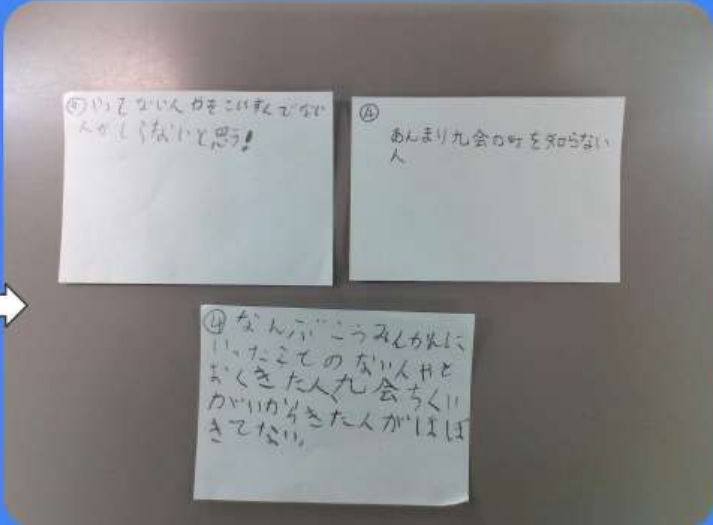 ④いってない人やそこにすんでない
人がしらないと思う!
④
あんまり九会の町を知らない
人
④なんぶこうみんかんに
いったことのない人やと
おくきた人、九会ちくい
がいからきた人がほぼ
きてない。